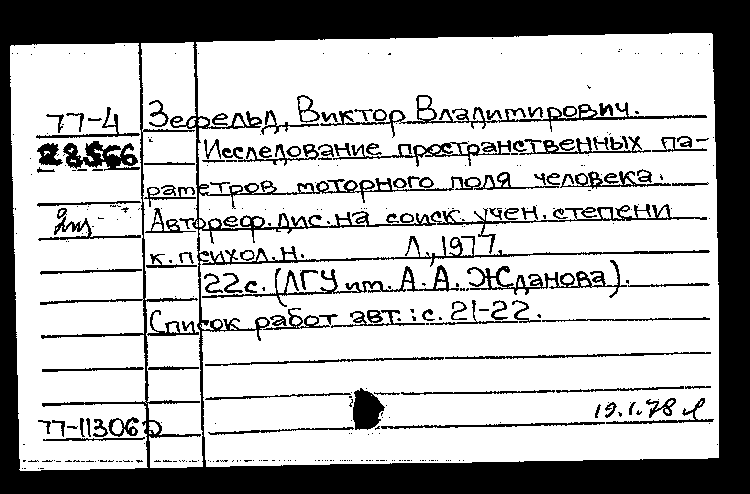 77-4 Зефельд, Виктор Владимирович.
28566 Исследование пространственных па-
раметров моторного поля человека.
2эк Автореф. дис. на соиск. учен. степени
к. психол. н. Л., 1977.
22с. (ЛГУ им. А. А. Жданова).
Список работ авт.: с. 21-22.
77-11306
19.1.78